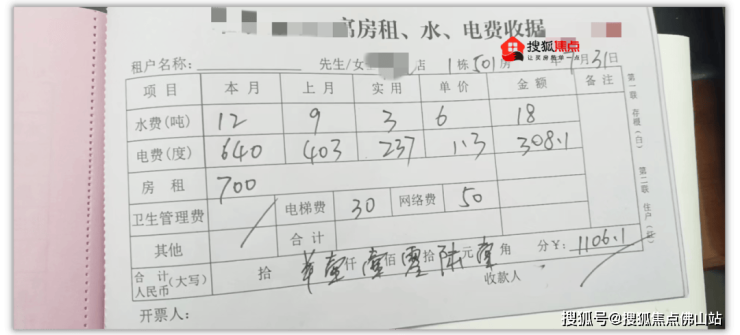 富房租、水、电费收据
搜狐焦点
让买房简单一点
租户名称： 先生/女 店 1栋501房 年7月31日
项目 本月 上月 实用 单价 金额 备注
水费(吨) 12 9 3 6 18
电费(度) 640 403 237 1.3 308.1
房租 700
卫生管理费 电梯费 30 网络费 50
其他 合计
合计人民币(大写) 拾 壹仟 壹佰 零拾 陆元 壹角 分¥：1106.1
开票人： 收款人
第一联 存根(白) 第二联 住户(红)
搜狐号@搜狐焦点佛山站